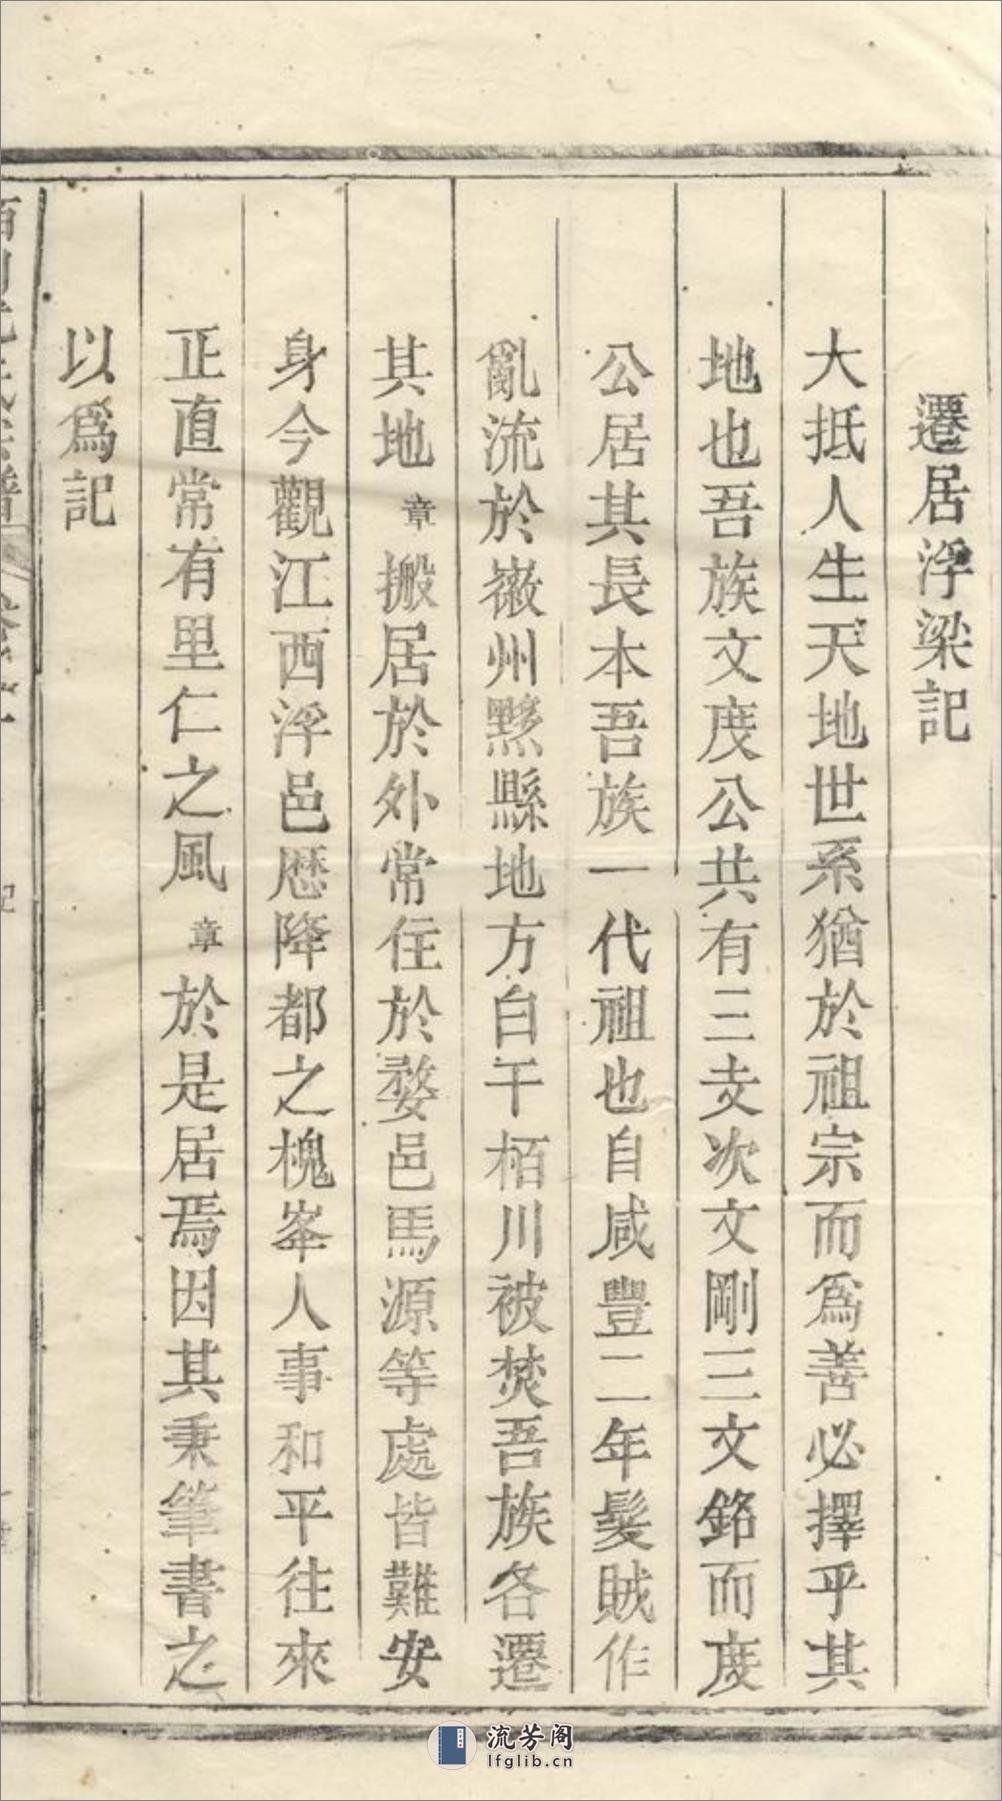 遷居浮梁記
大抵人生天地世系猶於祖宗而爲善必擇乎其
地也吾族文度公共有三支次文剛三文銘而度
公居其長本吾族一代祖也自咸豐二年髮賊作
亂流於徽州黟縣地方白干栢川被焚吾族各遷
其地章搬居於外常住於婺邑馬源等處皆難安
身今觀江西浮邑歷降都之槐峯人事和平往來
正直常有里仁之風章於是居焉因其秉筆書之
以爲記
流芳阁
lfglib.cn